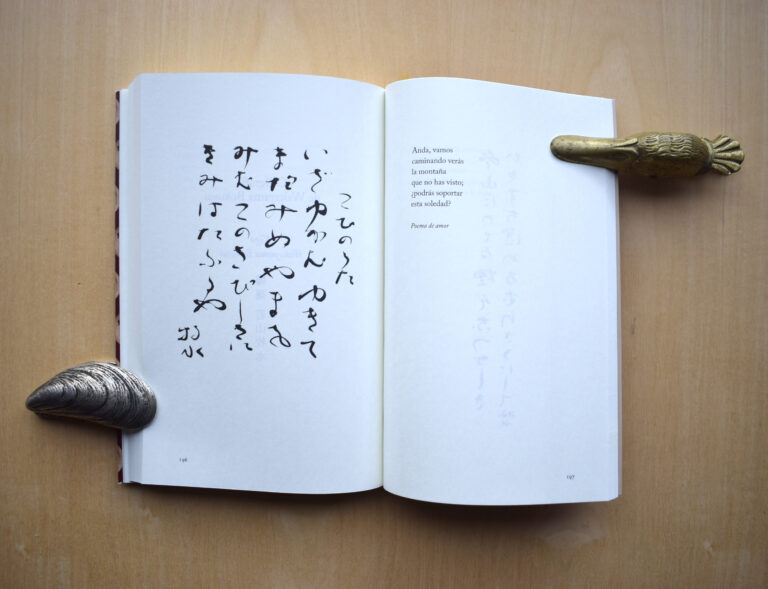 こひのうた
いざゆかん ゆきて
まだみぬ やまを
みむこのさびしさに
きみはたふるや
牧水
196
Anda, vamos
caminando verás
la montaña
que no has visto;
¿podrás soportar
esta soledad?
Poema de amor
197